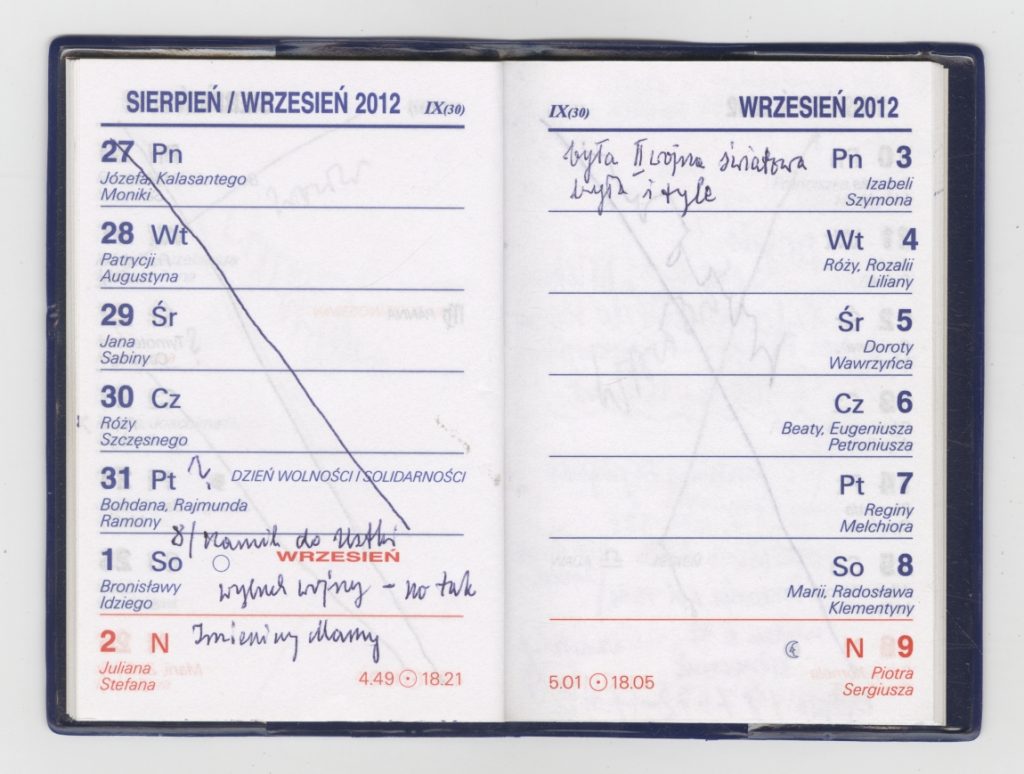 SIERPIEŃ / WRZESIEŃ 2012 IX(30)
27 Pn
Józefa, Kalasantego
Moniki
28 Wt
Patrycji
Augustyna
29 Śr
Jana
Sabiny
30 Cz
Róży
Szczęsnego
31 Pt
DZIEŃ WOLNOŚCI I SOLIDARNOŚCI
Bohdana, Rajmunda
Ramony
8/ Kamil do Ustki
WRZESIEŃ
1 So
wybuch wojny – no tak
Bronisławy
Idziego
2 N Imieniny Mamy
Juliana
Stefana
4.49 18.21
IX(30) WRZESIEŃ 2012
była II wojna światowa
była i tyle
Pn 3
Izabeli
Szymona
Wt 4
Róży, Rozalii
Liliany
Śr 5
Doroty
Wawrzyńca
Cz 6
Beaty, Eugeniusza
Petroniusza
Pt 7
Reginy
Melchiora
So 8
Marii, Radosława
Klementyny
N 9
Piotra
Sergiusza
5.01 18.05